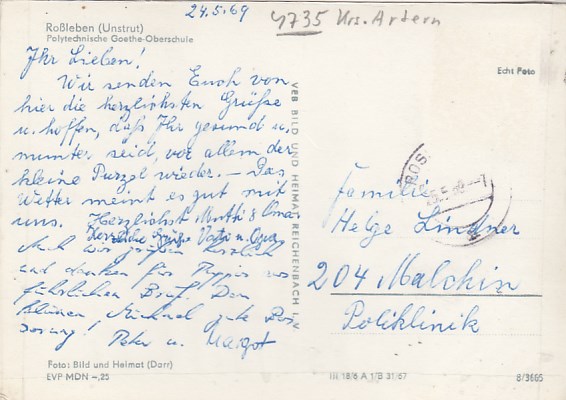 24.5.69
4735 Krs. Artern
Roßleben (Unstrut)
Polytechnische Goethe-Oberschule
Echt Foto
Ihr Lieben!
Wir senden Euch von
hier die herzlichsten Grüße
u. hoffen, daß Ihr gesund u.
munter seid, vor allem der
kleine Purzel wieder. – Das
Wetter meint es gut mit
uns. Herzlichst Mutti & Oma
Herzliche Grüße Vati u. Opa
Auch wir grüßen herzlich
und danken für
führlichen Brief. Dem
kleinen gute Bes
serung! Peter u. Margot
VEB BILD UND HEIMAT REICHENBACH I. V.
Familie
Helge Lindner
204 Malchin
Poliklinik
Foto: Bild und Heimat (Darr)
EVP MDN –,25
III 18/6 A 1/B 31/67
8/3685